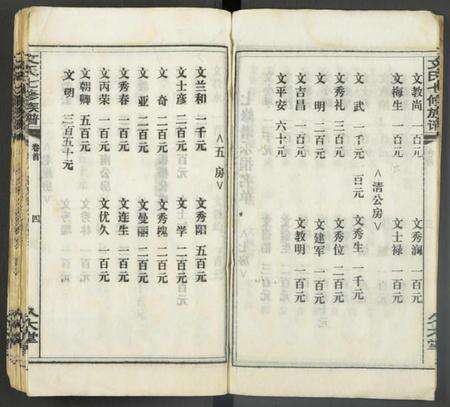 文氏七修族谱
文教尚 一百元 文秀澜 一百元
文梅生 一百元 文士禄 一百元
<清公房>
文武 一千元 文秀生 一千元
文秀礼 三百元 文秀位 二百元
文明 二百元 文建军 一百元
文吉昌 一百元 文教明 一百元
文平安 六十元
<五房>
文兰和 一千元 文秀阳 五百元
文士彦 二百元 文士学 二百元
文奇 二百元 文秀槐 二百元
文亚 二百元 文曼丽 二百元
文秀春 一百元 文连生 一百元
文丙荣 一百元 文优久 一百元
文朝卿 五百元
文明 三百五十元
文氏七修族谱
卷首
四